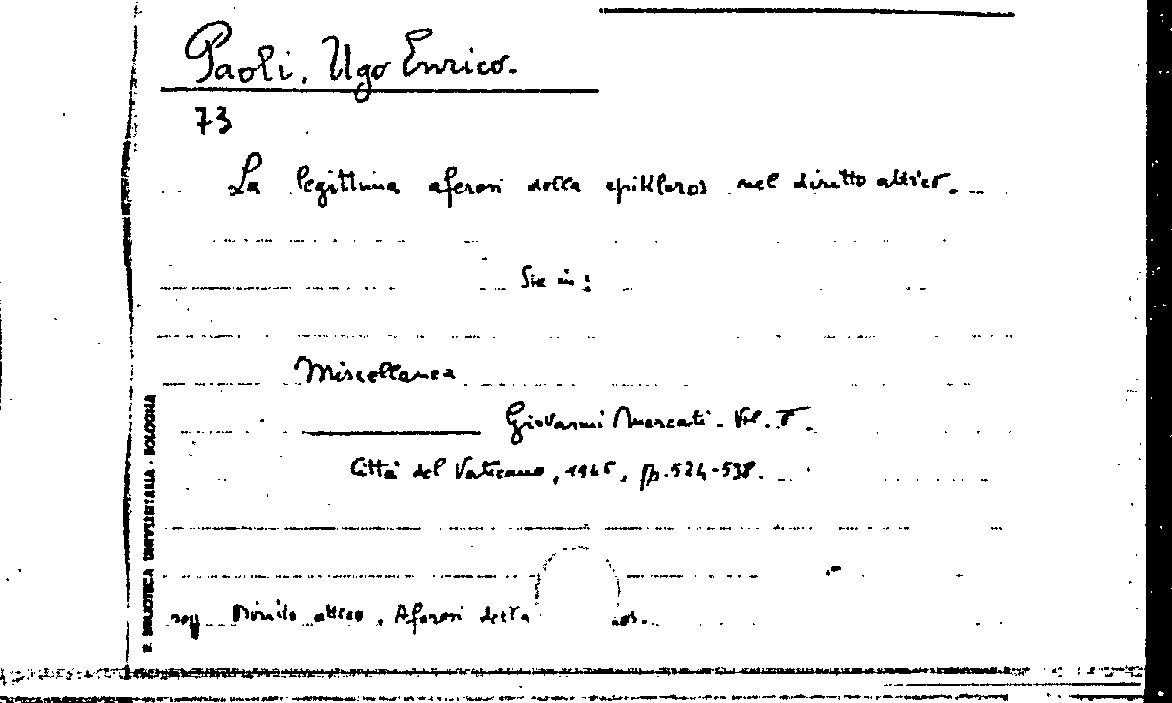 Paoli, Ugo Enrico.
73
La legittima aferesi della epikleros nel diritto attico.
Sta in:
Miscellanea
Giovanni Mercati. Vol. V.
Città del Vaticano, 1946, pp. 524-538.
sogg Diritto attico, Aferesi della os.
R. BIBLIOTECA UNIVERSITARIA - BOLOGNA